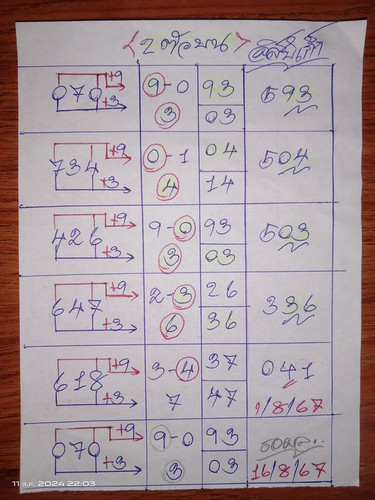 <2 ตัวบน>
+9
070 9-0 93 593
+3 3 03
+9
734 0-1 04 504
+3 4 14
+9
426 9-0 93 503
+3 3 03
+9
647 2-3 26 336
+3 6 36
+9
618 3-4 37 041
+3 7 47 1/8/67
+9
070 9-0 93
+3 3 03 16/8/67
11 ส.ค. 2024 22:03